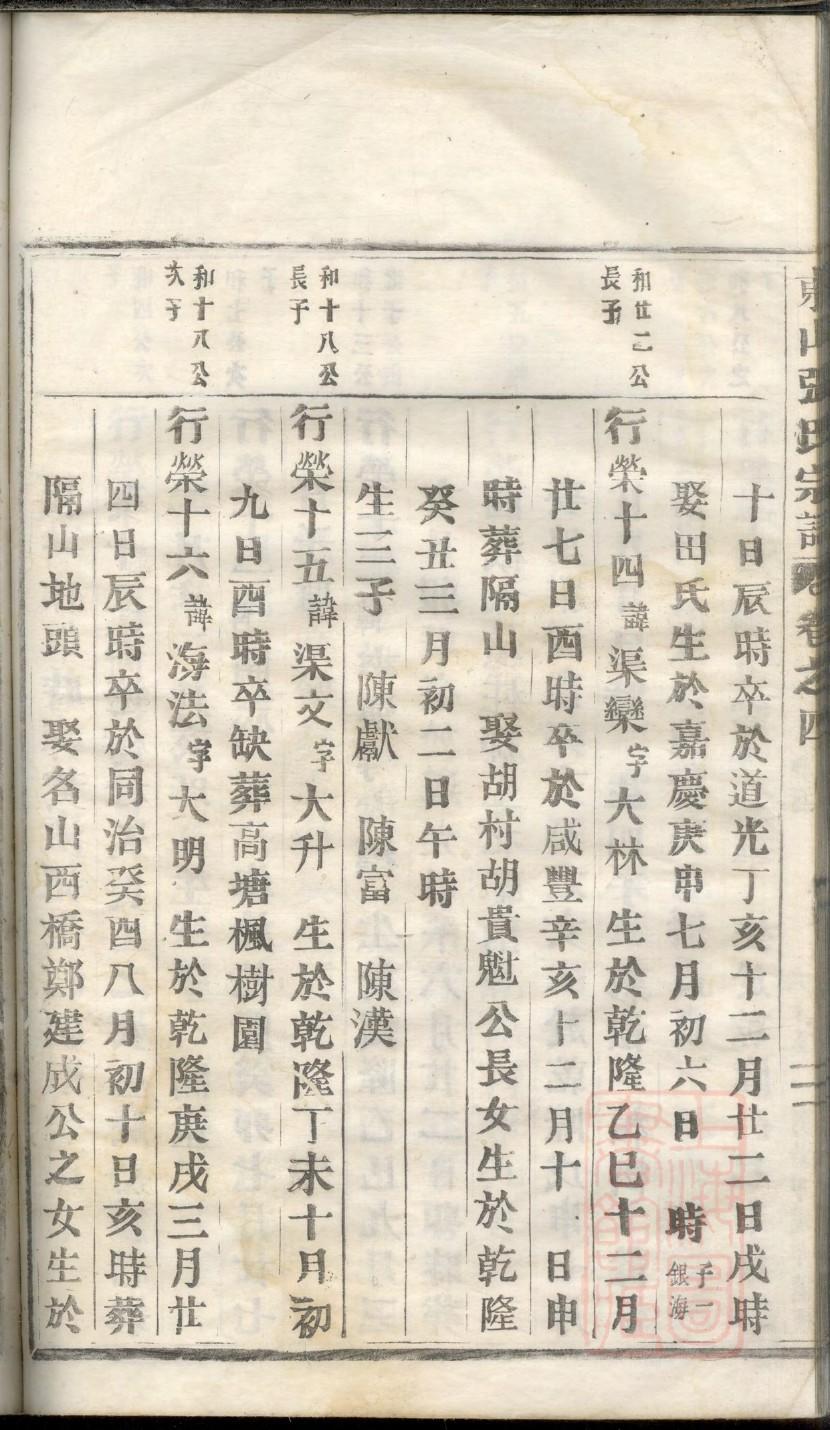 山張氏宗譜 卷之四
十日辰時卒於道光丁亥十二月廿二日戌時
娶田氏生於嘉慶庚申七月初六日 時 子一 銀海
和廿二公 長子
行榮十四 諱渠欒 字大林 生於乾隆乙巳十二月
廿七日酉時卒於咸豐辛亥十二月十 日申
時葬隔山 娶胡村胡貴魁公長女生於乾隆
癸丑三月初二日午時
生三子 陳獻 陳富 陳漢
和十八公 長子
行榮十五 諱渠文 字大升 生於乾隆丁未十月初
九日酉時卒缺葬高塘楓樹園
和十八公 次子
行榮十六 諱海法 字大明 生於乾隆庚戌三月廿
四日辰時卒於同治癸酉八月初十日亥時葬
隔山地頭 娶名山西橋鄭建成公之女生於